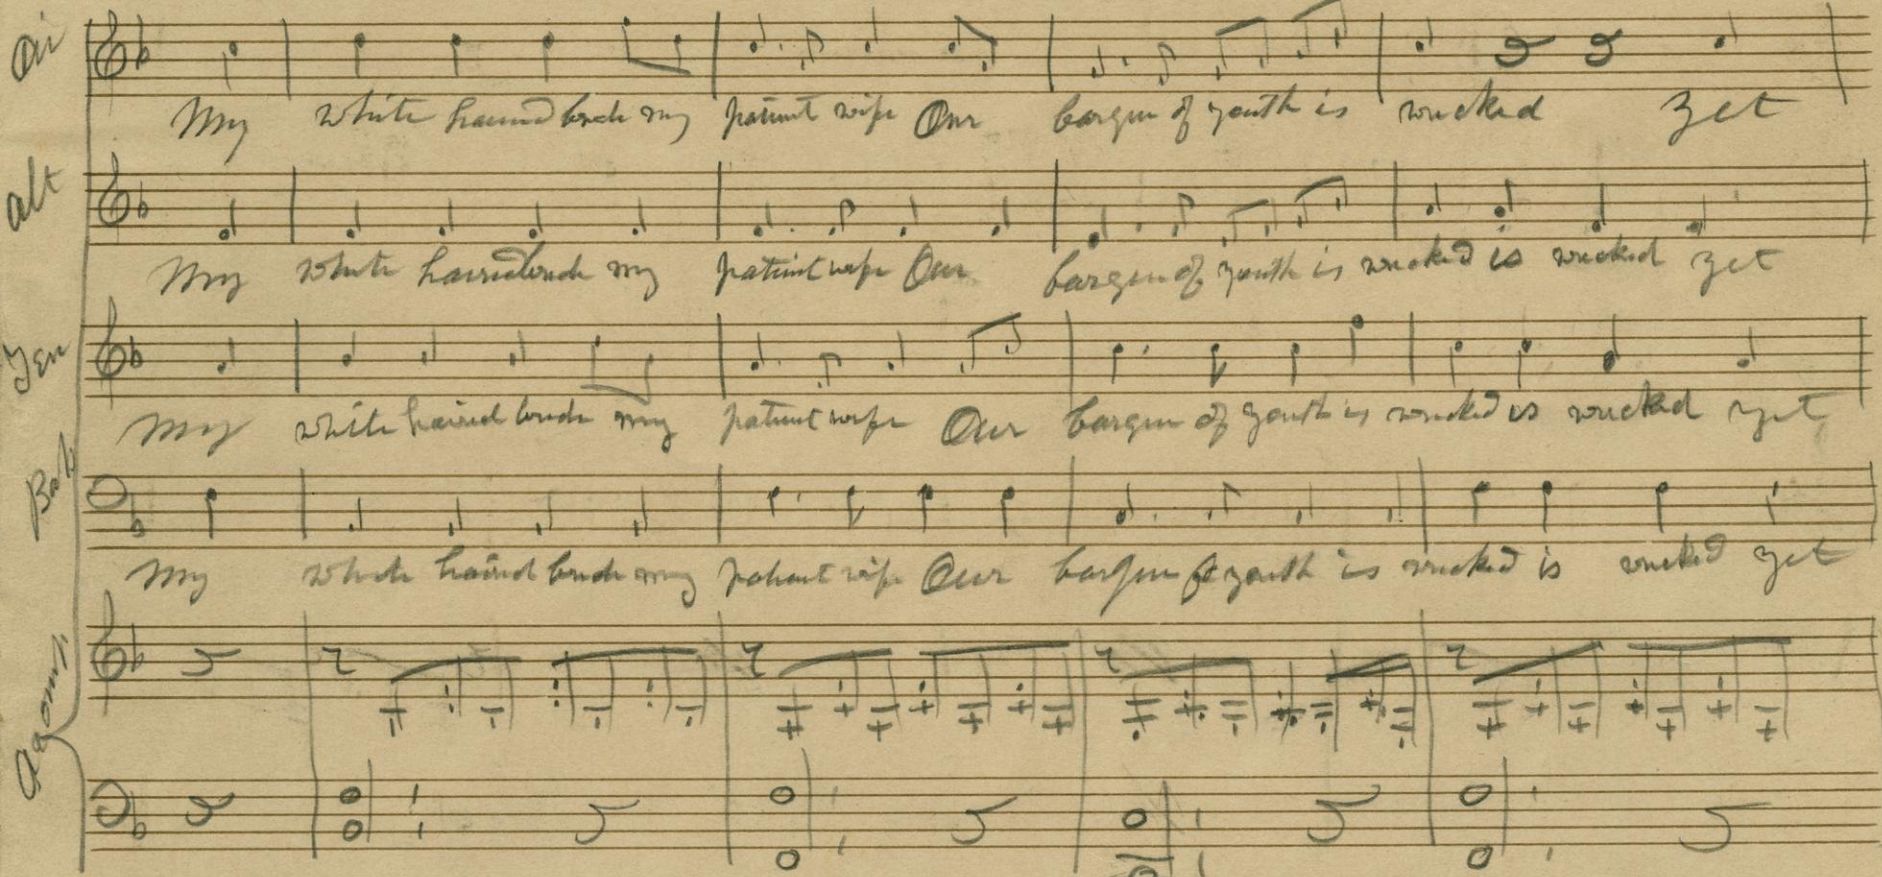 Air
My white haired bride my patient wife Our barque of youth is wrecked yet
Alt
My white haired bride my patient wife Our barque of youth is wrecked is wrecked yet
Ten
My white haired bride my patient wife Our barque of youth is wrecked is wrecked yet
My white haired bride my patient wife Our barque of youth is wrecked is wrecked yet
Accom.